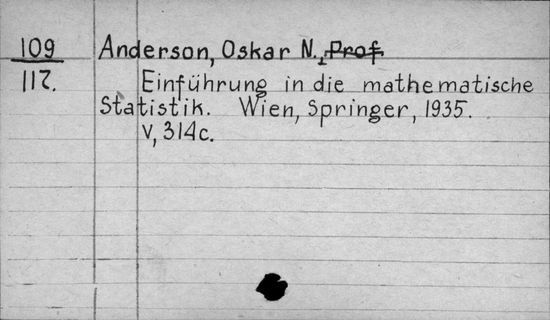 109 Anderson, Oskar N., Prof
112. Einführung in die mathematische
Statistik. Wien, Springer, 1935.
V, 314c.